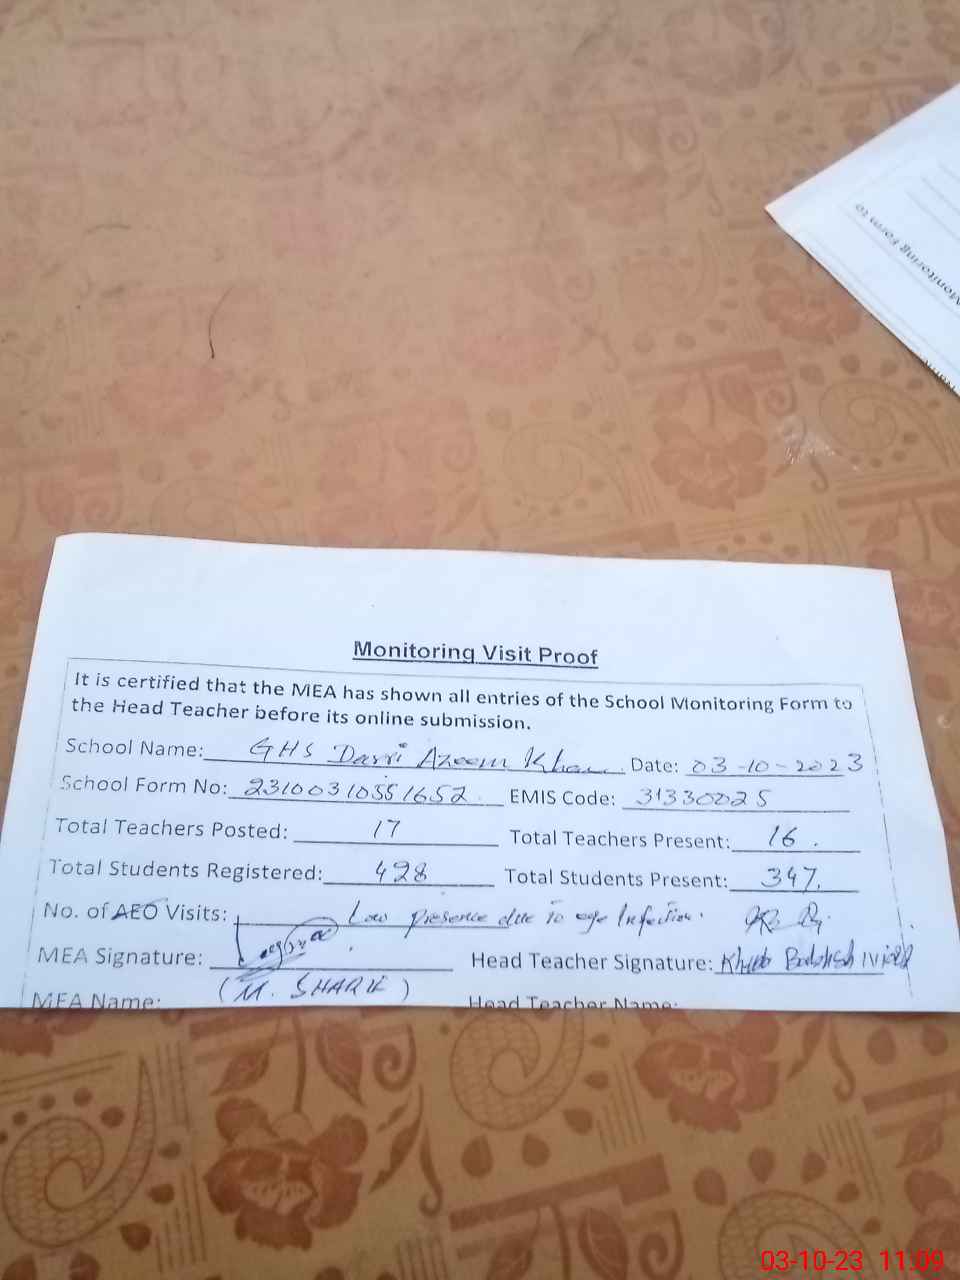 Monitoring Form to
Monitoring Visit Proof
It is certified that the MEA has shown all entries of the School Monitoring Form to
the Head Teacher before its online submission.
School Name: GHS Darri Azeem Khan Date: 03-10-2023
School Form No: 23100310551652 EMIS Code: 31330025
Total Teachers Posted: 17 Total Teachers Present: 16.
Total Students Registered: 428 Total Students Present: 347.
No. of AEO Visits: Low presence due to eye Infection.
MEA Signature: Head Teacher Signature:
MEA Name: (M. SHARIF) Head Teacher Name:
03-10-23 11:09